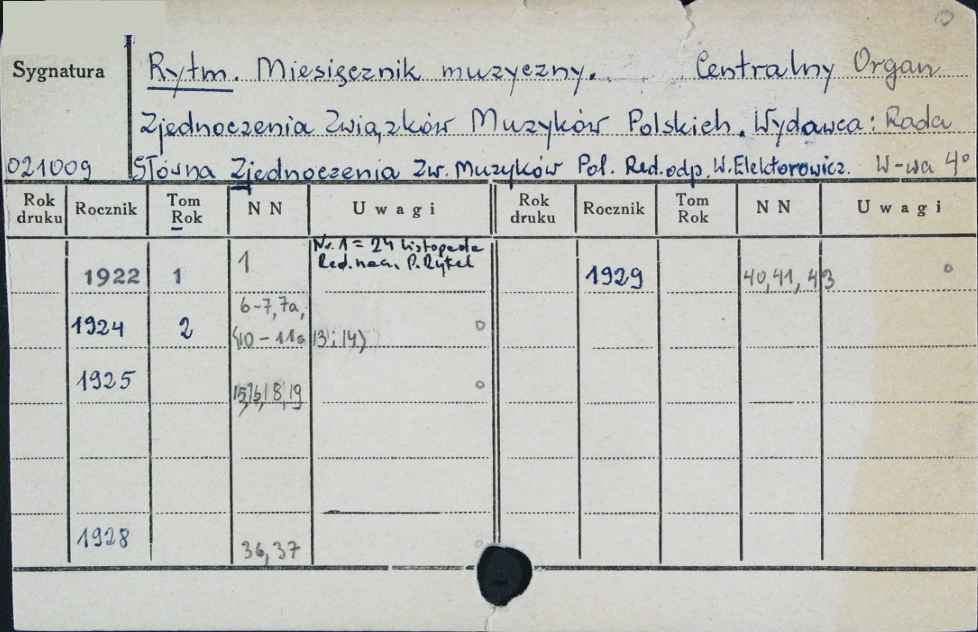 Sygnatura
Rytm. Miesięcznik muzyczny. Centralny Organ
Zjednoczenia Związków Muzyków Polskich. Wydawca: Rada
021009 Główna Zjednoczenia Zw. Muzyków Pol. Red. odp. W. Elektorowicz. W-wa 4°
Rok druku Rocznik Tom Rok NN Uwagi Rok druku Rocznik Tom Rok NN Uwagi
Nr. 1 = 24 listopada
Red. nacz. P. Rytel
1922 1 1 1929 40, 41, 43
6-7, 7a,
1924 2 (10-11a 13 i 14)
1925 15, 16, 18, 19
1928 36, 37